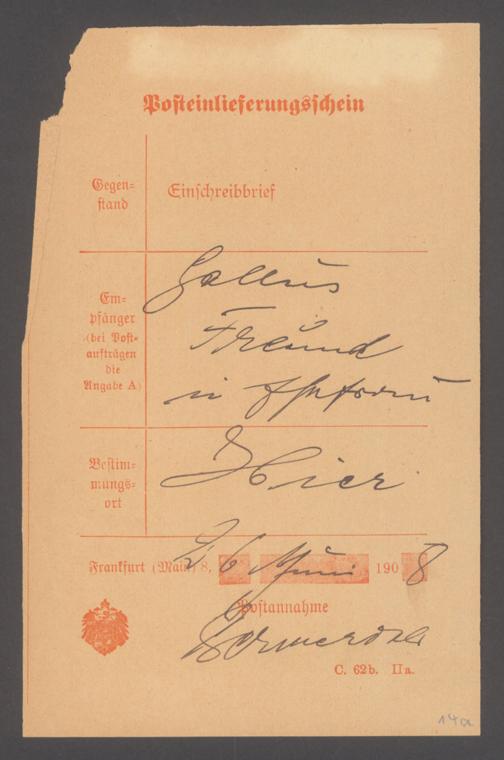 Posteinlieferungsschein
Gegen=
stand
Einschreibbrief
Em=
pfänger
(bei Post=
aufträgen
die
Angabe A)
Gallus
Freund
Bestim=
mungs=
ort
Hier
Frankfurt (Main) 8, 26 Juni 1908
Postannahme
C. 62b. IIa.
14a